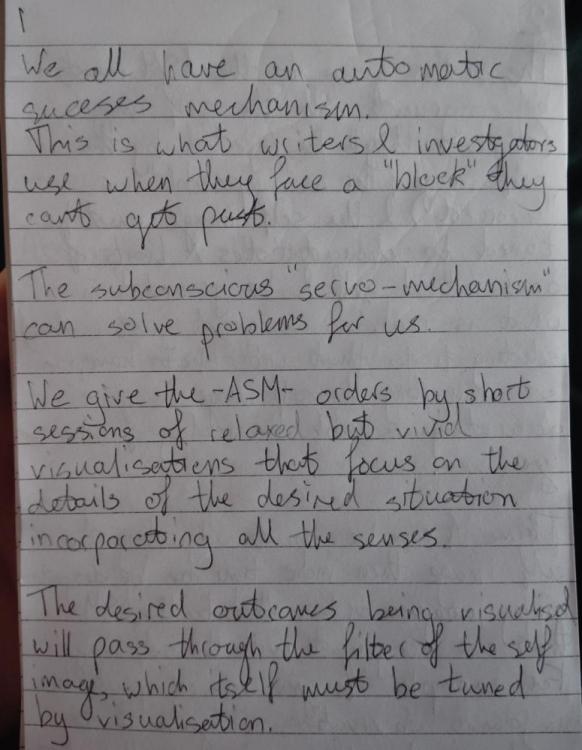 1
We all have an automatic
sucesses mechanism.
This is what writers & investgators
use when they face a "block" they
cant get past.
The subconscious "servo-mechanism"
can solve problems for us.
We give the -ASM- orders by short
sessions of relaxed but vivid
visualisations that focus on the
details of the desired situation
incorporating all the senses.
The desired outcomes being visualised
will pass through the filter of the self
image, which itself must be tuned
by visualisation.